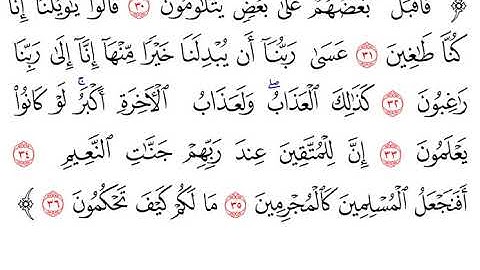 ﴿ فَأَقْبَلَ بَعْضُهُمْ عَلَىٰ بَعْضٍ يَتَلَٰوَمُونَ ٣٠ قَالُوا۟ يَٰوَيْلَنَآ إِنَّا
كُنَّا طَٰغِينَ ٣١ عَسَىٰ رَبُّنَآ أَن يُبْدِلَنَا خَيْرًا مِّنْهَآ إِنَّآ إِلَىٰ رَبِّنَا
رَٰغِبُونَ ٣٢ كَذَٰلِكَ ٱلْعَذَابُ ۖ وَلَعَذَابُ ٱلْءَاخِرَةِ أَكْبَرُ ۚ لَوْ كَانُوا۟
يَعْلَمُونَ ٣٣ إِنَّ لِلْمُتَّقِينَ عِندَ رَبِّهِمْ جَنَّٰتِ ٱلنَّعِيمِ ٣٤
أَفَنَجْعَلُ ٱلْمُسْلِمِينَ كَٱلْمُجْرِمِينَ ٣٥ مَا لَكُمْ كَيْفَ تَحْكُمُونَ ٣٦ ﴾